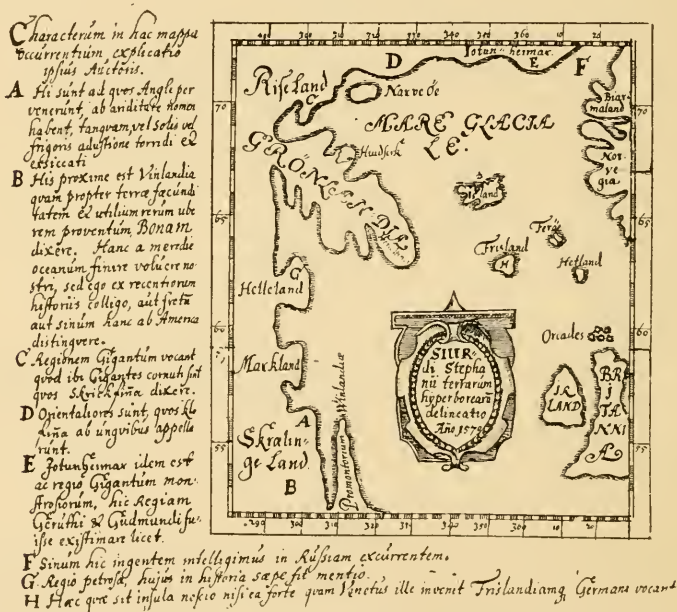 Characterum in hac mappa
occurrentium explicatio
ipsius Auctoris.
A Hi sunt ad quos Angli per
venerunt, ab ariditate nomen
habent, tanquam vel solis vel
frigoris adustione torridi et
exsiccati
B His proxime est Vinlandia
quam propter terræ fæcundi
tatem et utilium rerum ube
rem proventum, Bonam
dixere. Hanc a meredie
oceanum finire voluere no
stri, sed ego ex recentiorum
historiis colligo, aut fretū
aut sinum hanc ab America
distinguere.
C Regionem Gigantum vocant
quod ibi Gigantes cornuti sint
quos Skrickfiña dixere.
D Orientaliores sunt, quos Klo
fiña ab unguibus appella
runt.
E Jotunheimar idem est
ac regio Gigantum mon
strosorum, hic Regiam
Geruthi & Gudmundi fu-
isse existimare licet.
F Sinum hic ingentem intelligimus in Russiam excurrentem.
G Regio petrosa, hujus in historia sæpe fit mentio.
H Hæc quæ sit insula nescio nisi ea forte quam Venetus ille invenit Frislandiamq Germani vocant
290 300 310 320 330 340 350 360 10 20
D Jotun heimar E F
Riseland
C
Narve Oe
Biar
maland
70 70
MARE GLACIA
LE.
Huidserk
GRÖNLANDIA
Nor
ve
gia
Island
65 65
Ferö
Frisland
H
Hetland
G
Helleland
60 60
Orcades
Markland
SIUR
di Stepha
nii terrarum
hyperborearū
delineatio
Año 1570
IR
LAND
BR
I
TA
NNI
A
A
Skralin
ge Land
B
Promontorium Vinlandiæ
55 55
290 300 310 320 330 340 350 360 10 20